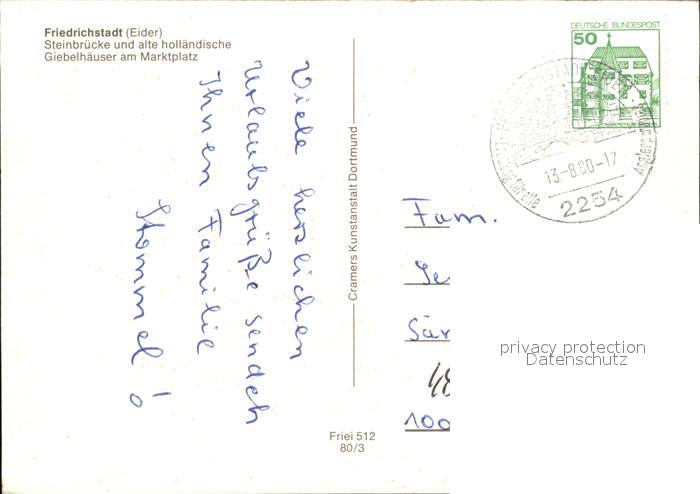 Friedrichstadt (Eider)
Steinbrücke und alte holländische
Giebelhäuser am Marktplatz
Viele herzlichen
Urlaubsgrüße senden
Ihnen Familie
Hommel!
Cramers Kunstanstalt Dortmund
Friei 512
80/3
DEUTSCHE BUNDESPOST
50
13.-8.80-17
2254
Fam.
Ge
Sär
48
100
privacy protection
Datenschutz